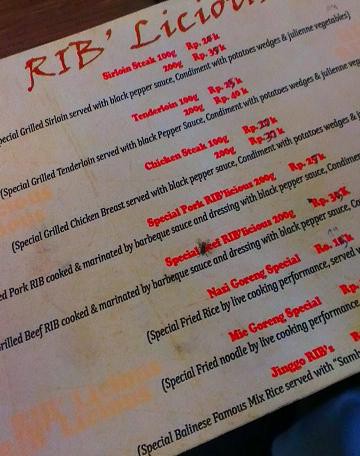 RIB' Licious
Sirloin Steak 100g Rp. 28 k
200g Rp. 35 k
Special Grilled Sirloin served with black pepper sauce, Condiment with potatoes wedges & julienne vegetables)
Tenderloin 100g Rp. 25 k
200g Rp. 40 k
(Special Grilled Tenderloin served with black Pepper Sauce, Condiment with potatoes wedges & julienne
Chicken Steak 100g Rp.
200g Rp.
(Special Grilled Chicken Breast served with black pepper sauce, Condiment with potatoes wedges &
Special Pork RIB'licious 200g Rp. 25 k
Pork RIB cooked & marinated by barbeque sauce and dressing with black pepper sauce, Condiment
Special RIB'licious 200g Rp. 35 K
Grilled Beef RIB cooked & marinated by barbeque sauce and dressing with black pepper sauce,
Nasi Goreng Special Rp. k
(Special Fried Rice by live cooking performance, served
Mie Goreng Special Rp.
(Special Fried noodle by live cooking performance
Jinggo RIB's Rp.
(Special Balinese Famous Mix Rice served with "Samb